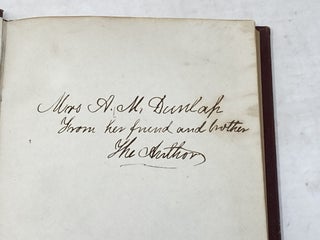 Mrs A. M. Dunlap
From her friend and brother
The Author